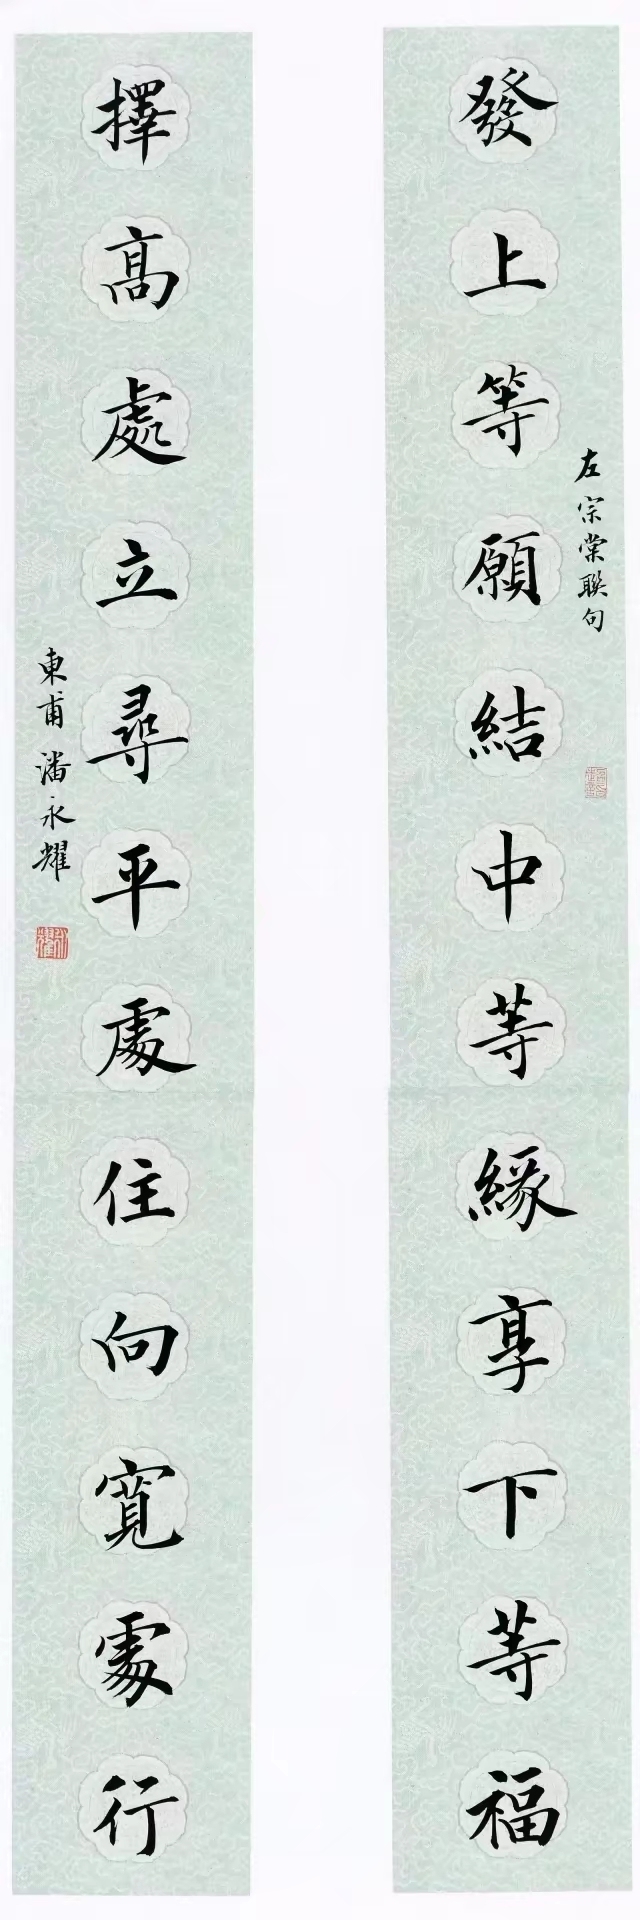 發上等願結中等緣享下等福
左宗棠聯句
擇高處立尋平處住向寬處行
東甫潘永耀